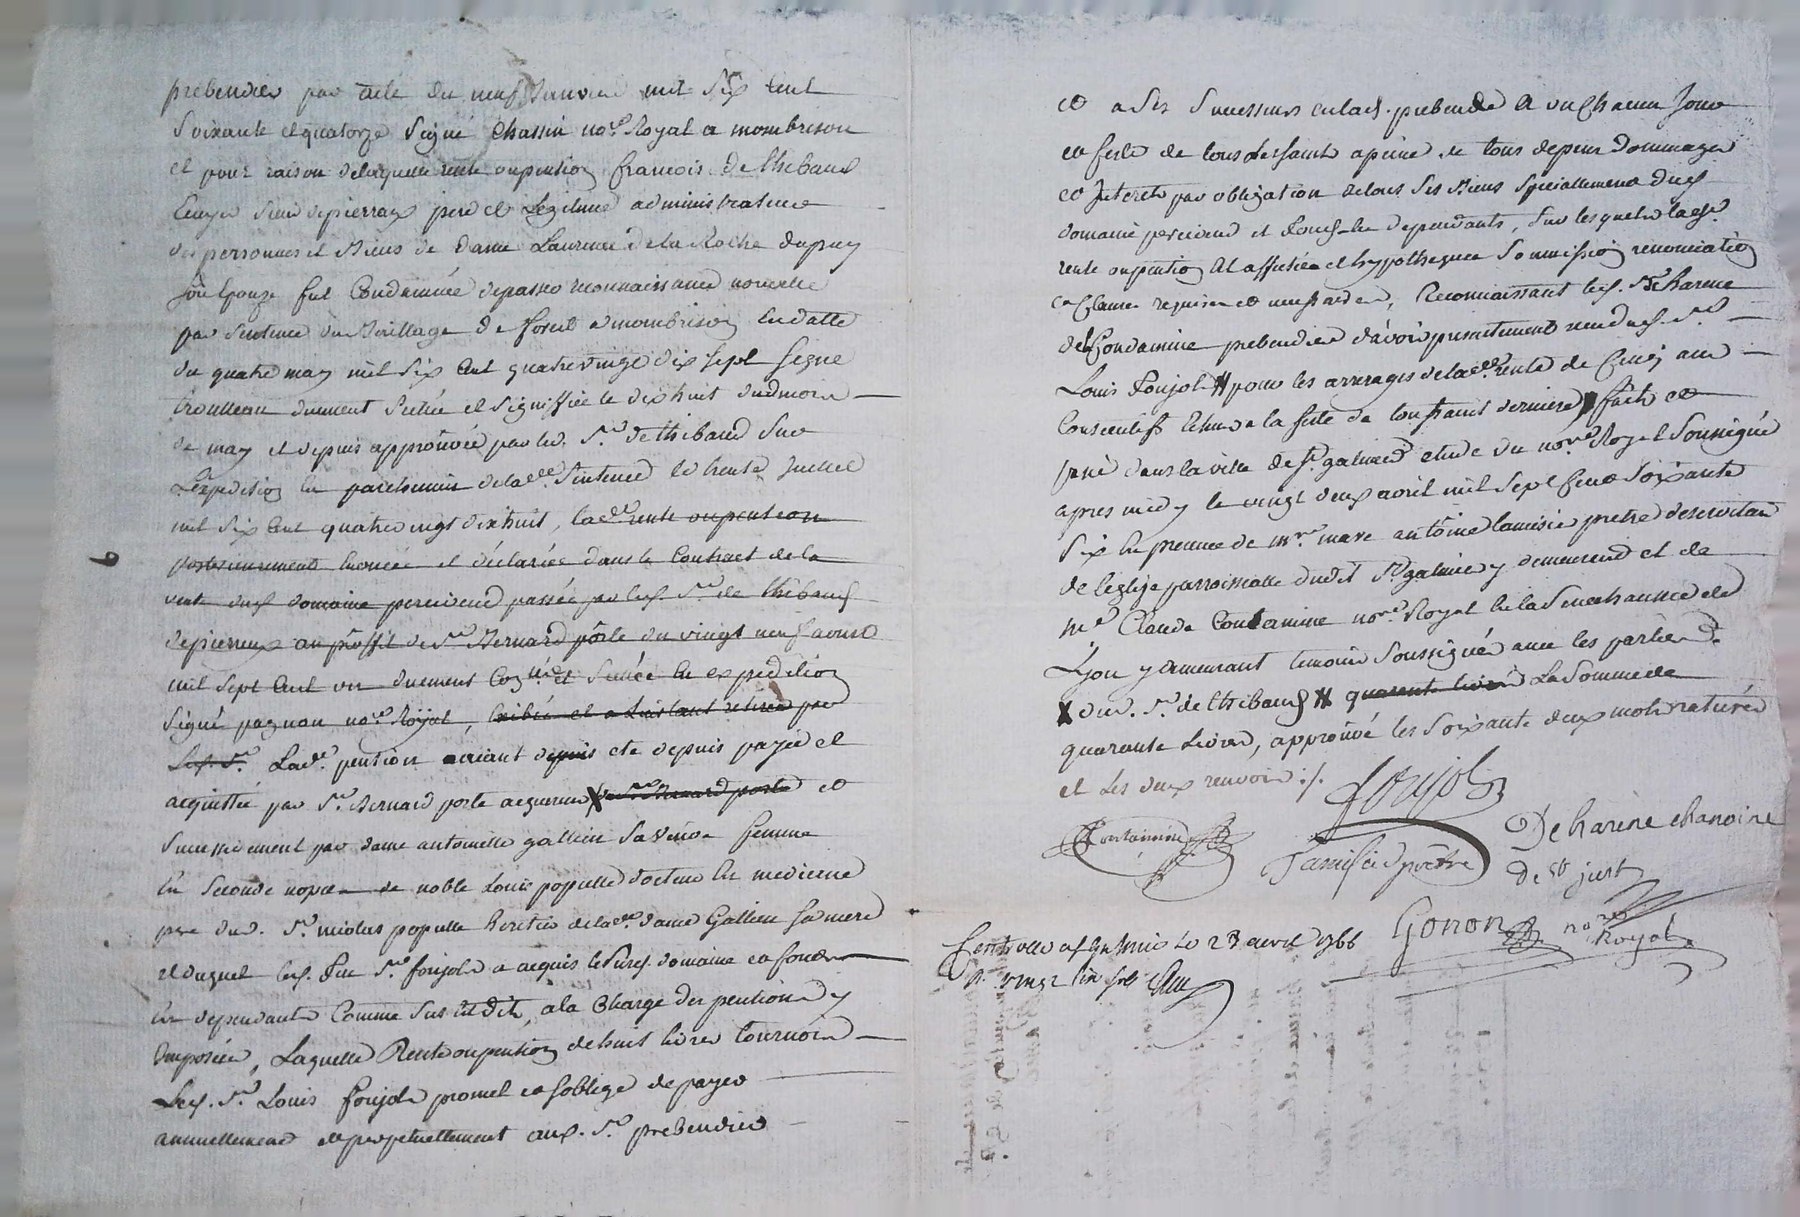 prebendier par acte du neuf Janvier mil Six cent
Soixante et quatorze Signé Chassin nore Royal a mombrison
et pour raison de laquelle rente ou pention francois de thibaud
Ecuyer Sieur de pierreux pere et Legitime administrateur
des personnes et Biens de dame Laurence de la Roche dupuy
Son Epouze fut Condamnée de passer reconnaissance nouvelle
par Sentence du Baillage de forest a mombrison en datte
du quatre may mil Six Cent quatrevingt dix Sept Signé
trouilleau duement Scellée et Signiffiée le dixhuit dud mois
de may et depuis approuvée par led. Sr de thibaud Sur
L'expedition en parchemin de lade Sentence le trente Juillet
mil Six Cent quatre vingt dix huit, lade rente ou pention
posterieurement enoncée et déclarée dans le Contract de la
vente dud domaine perceivend passée par led. Sr de thibaud
de pierreux au proffit de Sr Bernard porte du vingt neuf aoust
mil Sept Cent un duement Conllé et Scellée en expedition
Signé pagnon nore Royal, exibée et a L'instant retirée par
Led. Sr Lade pention aiant depuis ete depuis payée et
acquittée par Sr Bernard porte acquereur X du Sr Bernard porte et
Successivement par dame antoinette gallien Sa veuve femme
en Seconde nopces de noble Louis populle docteur en medecine
pere dud. Sr nicolas populle heritier de lade dame Gallien Sa mere
et duquel led. Feu Sr foujols a acquis le Susd. domaine et fonds
en dependants Comme Sus est dit, a la Charge des pentions y
Imposées, Laquelle Rente ou pention de huit livres tournois
Led. Sr Louis foujols promet et S'oblige de payer
annuellement et perpetuellement aud. Sr prebendier
et a Ses Successeurs en lad. prebende a un Chacun Jour
et feste de tous Les Saints a peine de tous depens dommages
et Interets par obligation de tous Ses Biens Spéciallement dud
domaine perceivend et fonds en dependants, Sur lesquels lade
rente ou pention est affectée et hypothequée Soumission renonciation
et Clauses requises et necessaires, Reconnaissant led. Sr De harene
de la Condamine prebendier d'avoir presentement receu dud. Sr
Louis Foujols # pour les arrerages de lade rente de Cinq années
Consecutifs echus a la fete de toussaint derniere, fait et
passé dans la ville de St galmier etude du nore Royal Soussigné
apres midy le vingt deux avril mil Sept Cent Soixante
Six en presence de mre marc antoine lamisié pretre deservitan
de l'eglize parroissialle dudit St galmier y demeurant et de
me Claude Contamine nore Royal en la Senechaussée de
Lyon y demeurant temoins Soussignés avec les parties.
X dud. Sr de thibaud # quarente livres La Somme de
quarante Livres, approuvé les Soixante deux mots raturés
et les deux renvois ./.
foujols
Contamine
Lamisié prêtre
De harene chanoine
de St just
Gonon nore
Royal
Controlle a St Galmier le 23 avril 1766